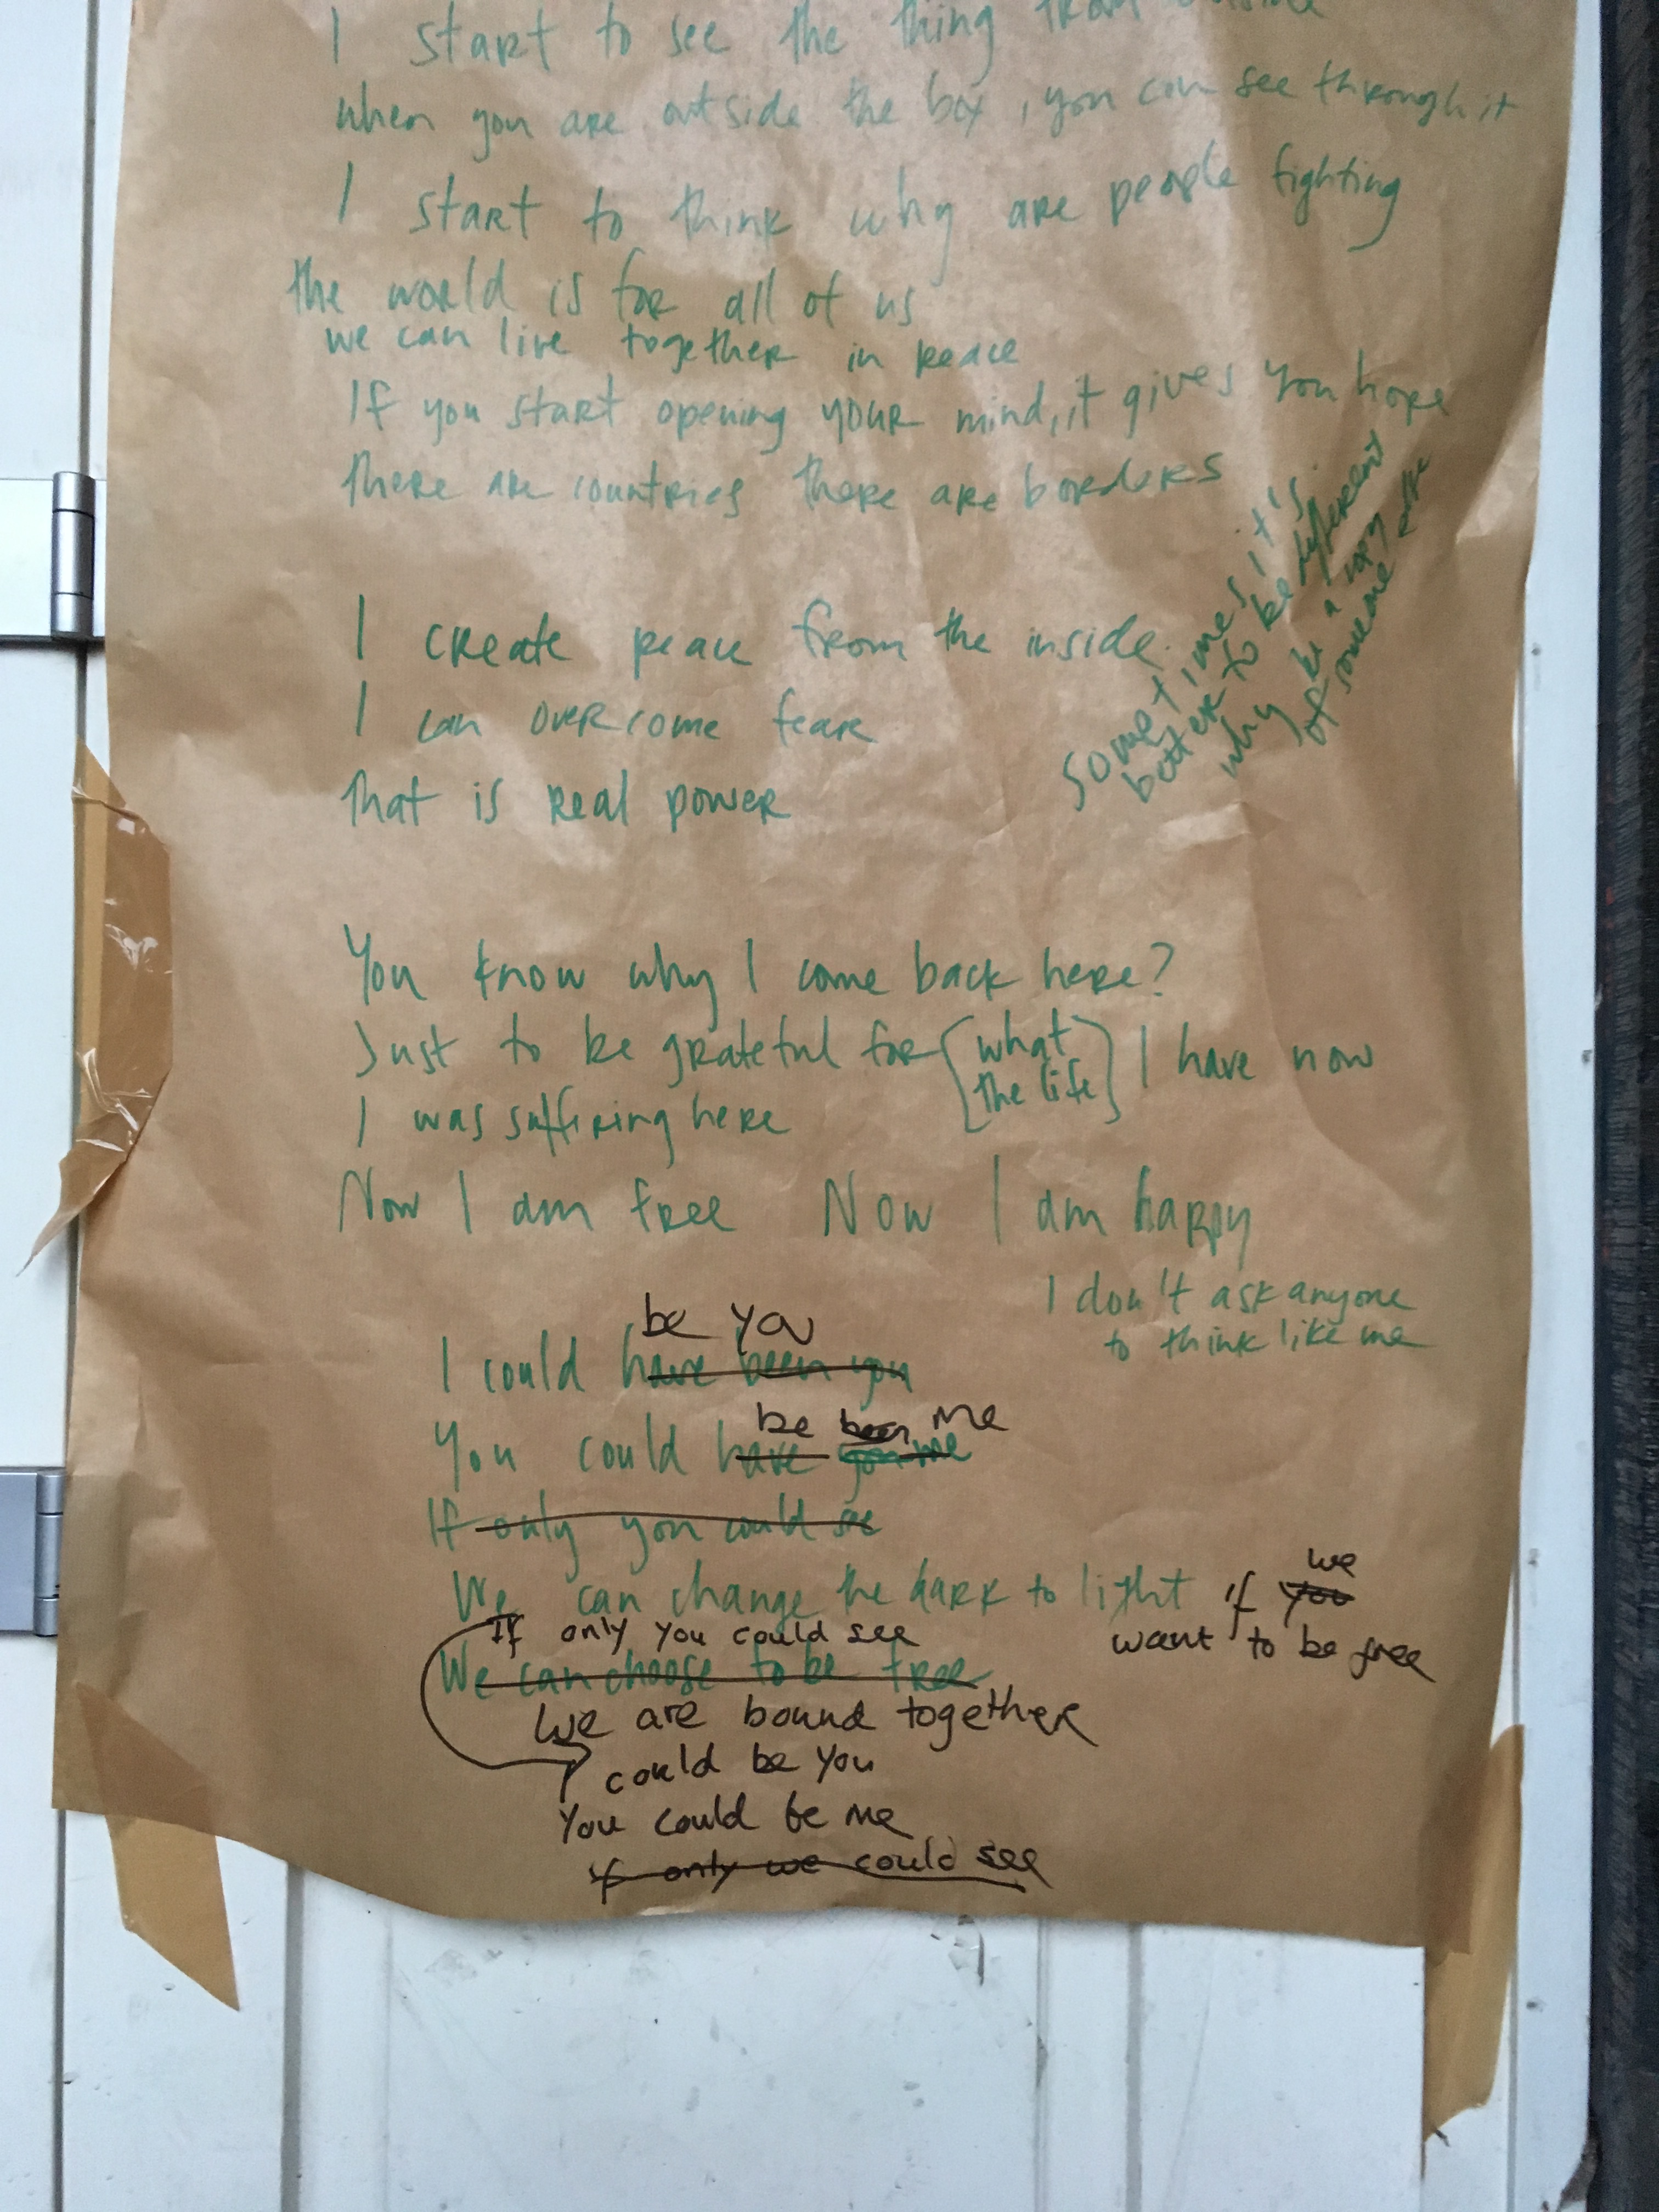 I start to see the thing from outside
when you are outside the box, you can see through it
I start to think why are people fighting
the world is for all of us
we can live together in peace
If you start opening your mind, it gives you hope
there are countries there are borders
sometimes it's
better to be different
why be a copy
of someone else
I create peace from the inside.
I can overcome fear
that is real power
You know why I come back here?
Just to be grateful for [what the life] I have now
I was suffiring here
Now I am free Now I am happy
I don't ask anyone
to think like me
be you
I could have been you
be been me
You could have you me
If only you could see
we
We can change the dark to light if you
want to be free
If only you could see
We can choose to be free
We are bound together
I could be you
You could be me
if only we could see